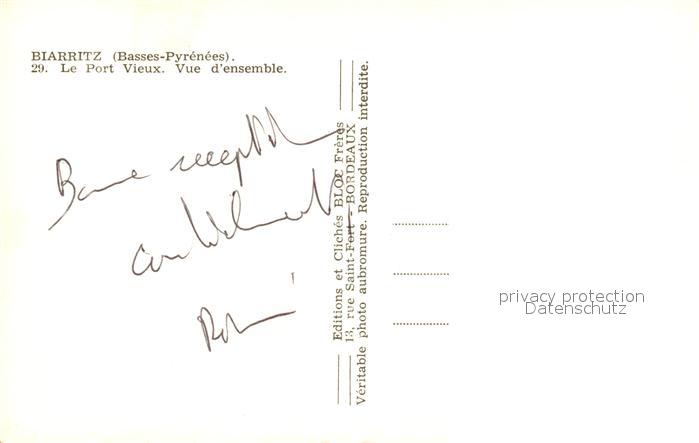 BIARRITZ (Basses-Pyrénées).
29. Le Port Vieux. Vue d'ensemble.
Bonne réception
cordialement
Editions et Clichés BLOC Frères
13, rue Saint-Fort - BORDEAUX
Véritable photo aubromure. Reproduction interdite.
privacy protection
Datenschutz